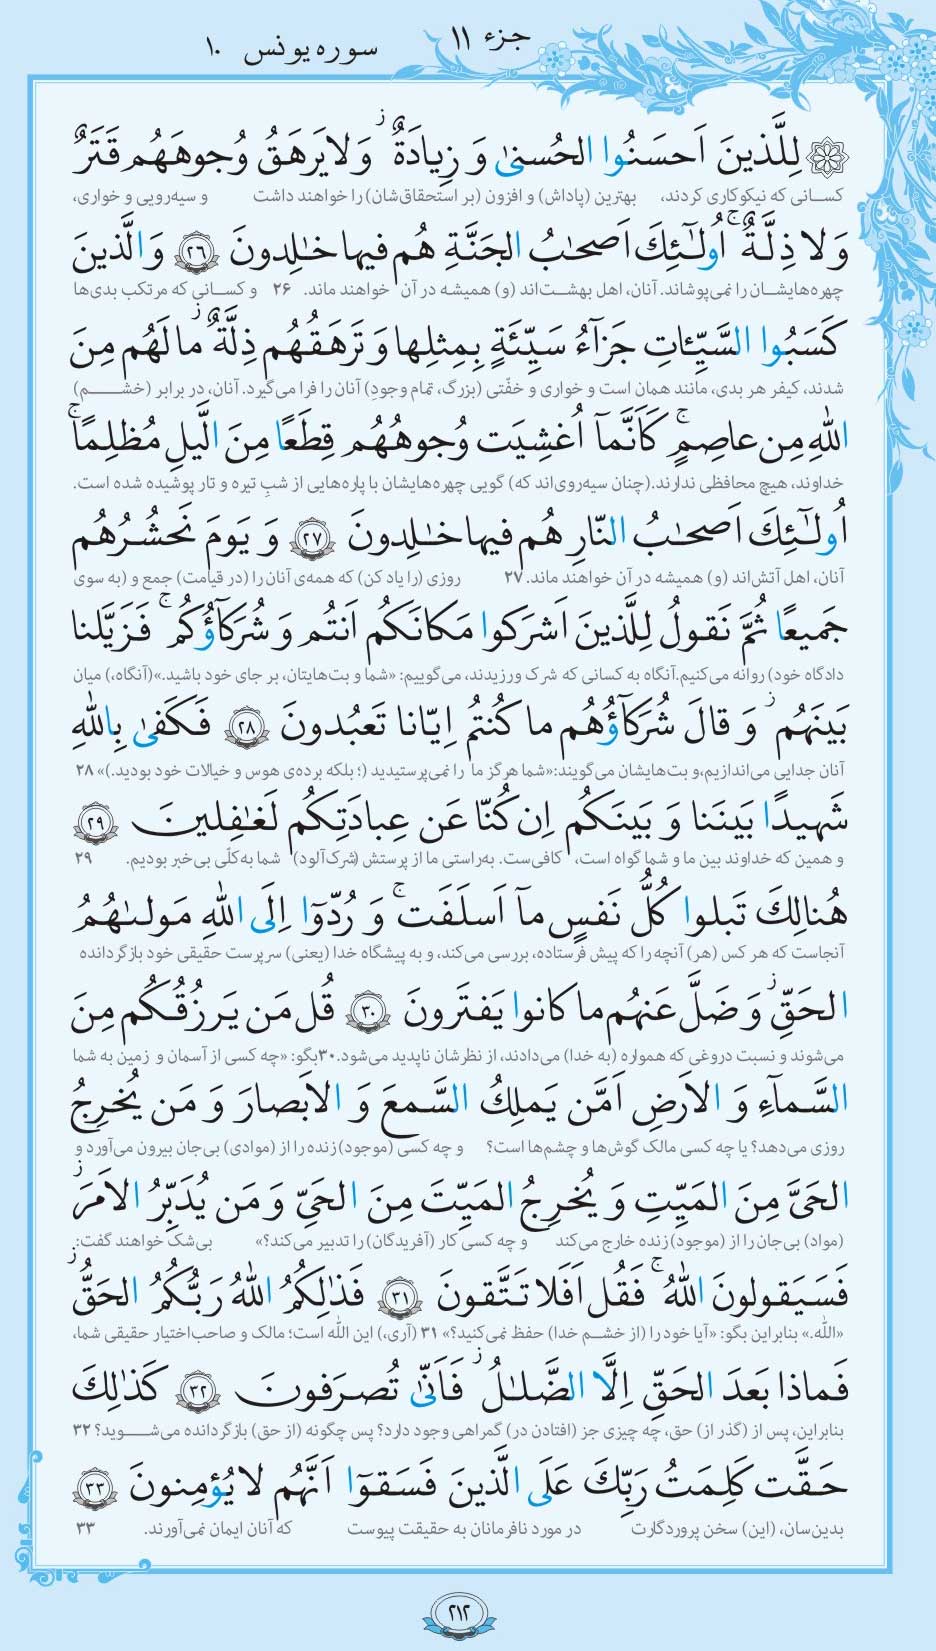 جزء ۱۱
سوره یونس ۱۰
لِلَّذینَ اَحسَنُوا الحُسنیٰ وَ زِیادَةٌ ۖ وَلا یَرهَقُ وُجوهَهُم قَتَرٌ
کسانی که نیکوکاری کردند، بهترین (پاداش) و افزون (بر استحقاق‌شان) را خواهند داشت و سیه‌رویی و خواری،
وَلا ذِلَّةٌ ۚ اُولٰٓئِكَ اَصحٰبُ الجَنَّةِ هُم فیها خٰلِدونَ ﴿۲۶﴾ وَالَّذینَ
چهره‌هایشان را نمی‌پوشاند. آنان، اهل بهشت‌اند (و) همیشه در آن خواهند ماند. ۲۶ و کسانی که مرتکب بدی‌ها
کَسَبُوا السَّیِّـٔاتِ جَزآءُ سَیِّئَةٍ بِمِثلِها وَ تَرهَقُهُم ذِلَّةٌ ۖ ما لَهُم مِنَ
شدند، کیفر هر بدی، مانند همان است و خواری و خفّتی (بزرگ، تمام وجودِ) آنان را فرا می‌گیرد. آنان، در برابر (خشم)
اللهِ مِن عاصِمٍ ۚ کَاَنَّمآ اُغشِیَت وُجوهُهُم قِطَعًا مِنَ الَّیلِ مُظلِمًا ۚ
خداوند، هیچ محافظی ندارند.(چنان سیه‌روی‌اند که) گویی چهره‌هایشان با پاره‌هایی از شبِ تیره و تار پوشیده شده است.
اُولٰٓئِكَ اَصحٰبُ النّارِ هُم فیها خٰلِدونَ ﴿۲۷﴾ وَ یَومَ نَحشُرُهُم
آنان، اهل آتش‌اند (و) همیشه در آن خواهند ماند. ۲۷ روزی (را یاد کن) که همه‌ی آنان را (در قیامت) جمع و (به سوی
جَمیعًا ثُمَّ نَقولُ لِلَّذینَ اَشرَکوا مَکانَکُم اَنتُم وَ شُرَکآؤُکُم ۚ فَزَیَّلنا
دادگاه خود) روانه می‌کنیم.آنگاه به کسانی که شرک ورزیدند، می‌گوییم: «شما و بت‌هایتان، بر جای خود باشید.»(آنگاه،) میان
بَینَهُم ۖ وَ قالَ شُرَکآؤُهُم ما کُنتُم اِیّانا تَعبُدونَ ﴿۲۸﴾ فَکَفیٰ بِاللهِ
آنان جدایی می‌اندازیم،و بت‌هایشان می‌گویند:«شما هرگز ما را نمی‌پرستیدید (؛ بلکه برده‌ی هوس و خیالات خود بودید.)» ۲۸
شَهیدًا بَینَنا وَ بَینَکُم اِن کُنّا عَن عِبادَتِکُم لَغٰفِلینَ ﴿۲۹﴾
و همین که خداوند بین ما و شما گواه است، کافی‌ست. به‌راستی ما از پرستش (شرک‌آلود) شما به‌کلّی بی‌خبر بودیم. ۲۹
هُنالِكَ تَبلوا کُلُّ نَفسٍ مآ اَسلَفَت ۚ وَ رُدّوٓا اِلَی اللهِ مَولىٰهُمُ
آنجاست که هر کس (هر) آنچه را که پیش فرستاده، بررسی می‌کند، و به پیشگاه خدا (یعنی) سرپرست حقیقی خود بازگردانده
الحَقِّ ۖ وَ ضَلَّ عَنهُم ما کانوا یَفتَرونَ ﴿۳۰﴾ قُل مَن یَرزُقُکُم مِنَ
می‌شوند و نسبت دروغی که همواره (به خدا) می‌دادند، از نظرشان ناپدید می‌شود.۳۰بگو: «چه کسی از آسمان و زمین به شما
السَّمآءِ وَ الاَرضِ اَمَّن یَملِكُ السَّمعَ وَ الاَبصارَ وَ مَن یُخرِجُ
روزی می‌دهد؟ یا چه کسی مالک گوش‌ها و چشم‌ها است؟ و چه کسی (موجود) زنده را از (موادی) بی‌جان بیرون می‌آورد و
الحَیَّ مِنَ المَیِّتِ وَ یُخرِجُ المَیِّتَ مِنَ الحَیِّ وَ مَن یُدَبِّرُ الاَمرَ ۖ
(مواد) بی‌جان را از (موجود) زنده خارج می‌کند و چه کسی کار (آفریدگان) را تدبیر می‌کند؟» بی‌شک خواهند گفت:
فَسَیَقولونَ اللهُ ۚ فَقُل اَفَلا تَتَّقونَ ﴿۳۱﴾ فَذٰلِکُمُ اللهُ رَبُّکُمُ الحَقُّ ۖ
«الله.» بنابراین بگو: «آیا خود را (از خشم خدا) حفظ نمی‌کنید؟» ۳۱ (آری،) این الله است؛ مالک و صاحب‌اختیار حقیقی شما،
فَماذا بَعدَ الحَقِّ اِلَّا الضَّلٰلُ ۖ فَاَنّیٰ تُصرَفونَ ﴿۳۲﴾ کَذٰلِكَ
بنابراین، پس از (گذر از) حق، چه چیزی جز (افتادن در) گمراهی وجود دارد؟ پس چگونه (از حق) بازگردانده می‌شوید؟ ۳۲
حَقَّت کَلِمَتُ رَبِّكَ عَلَی الَّذینَ فَسَقوٓا اَنَّهُم لا یُؤمِنونَ ﴿۳۳﴾
بدین‌سان، (این) سخن پروردگارت در مورد نافرمانان به حقیقت پیوست که آنان ایمان نمی‌آورند. ۳۳
۲۱۲